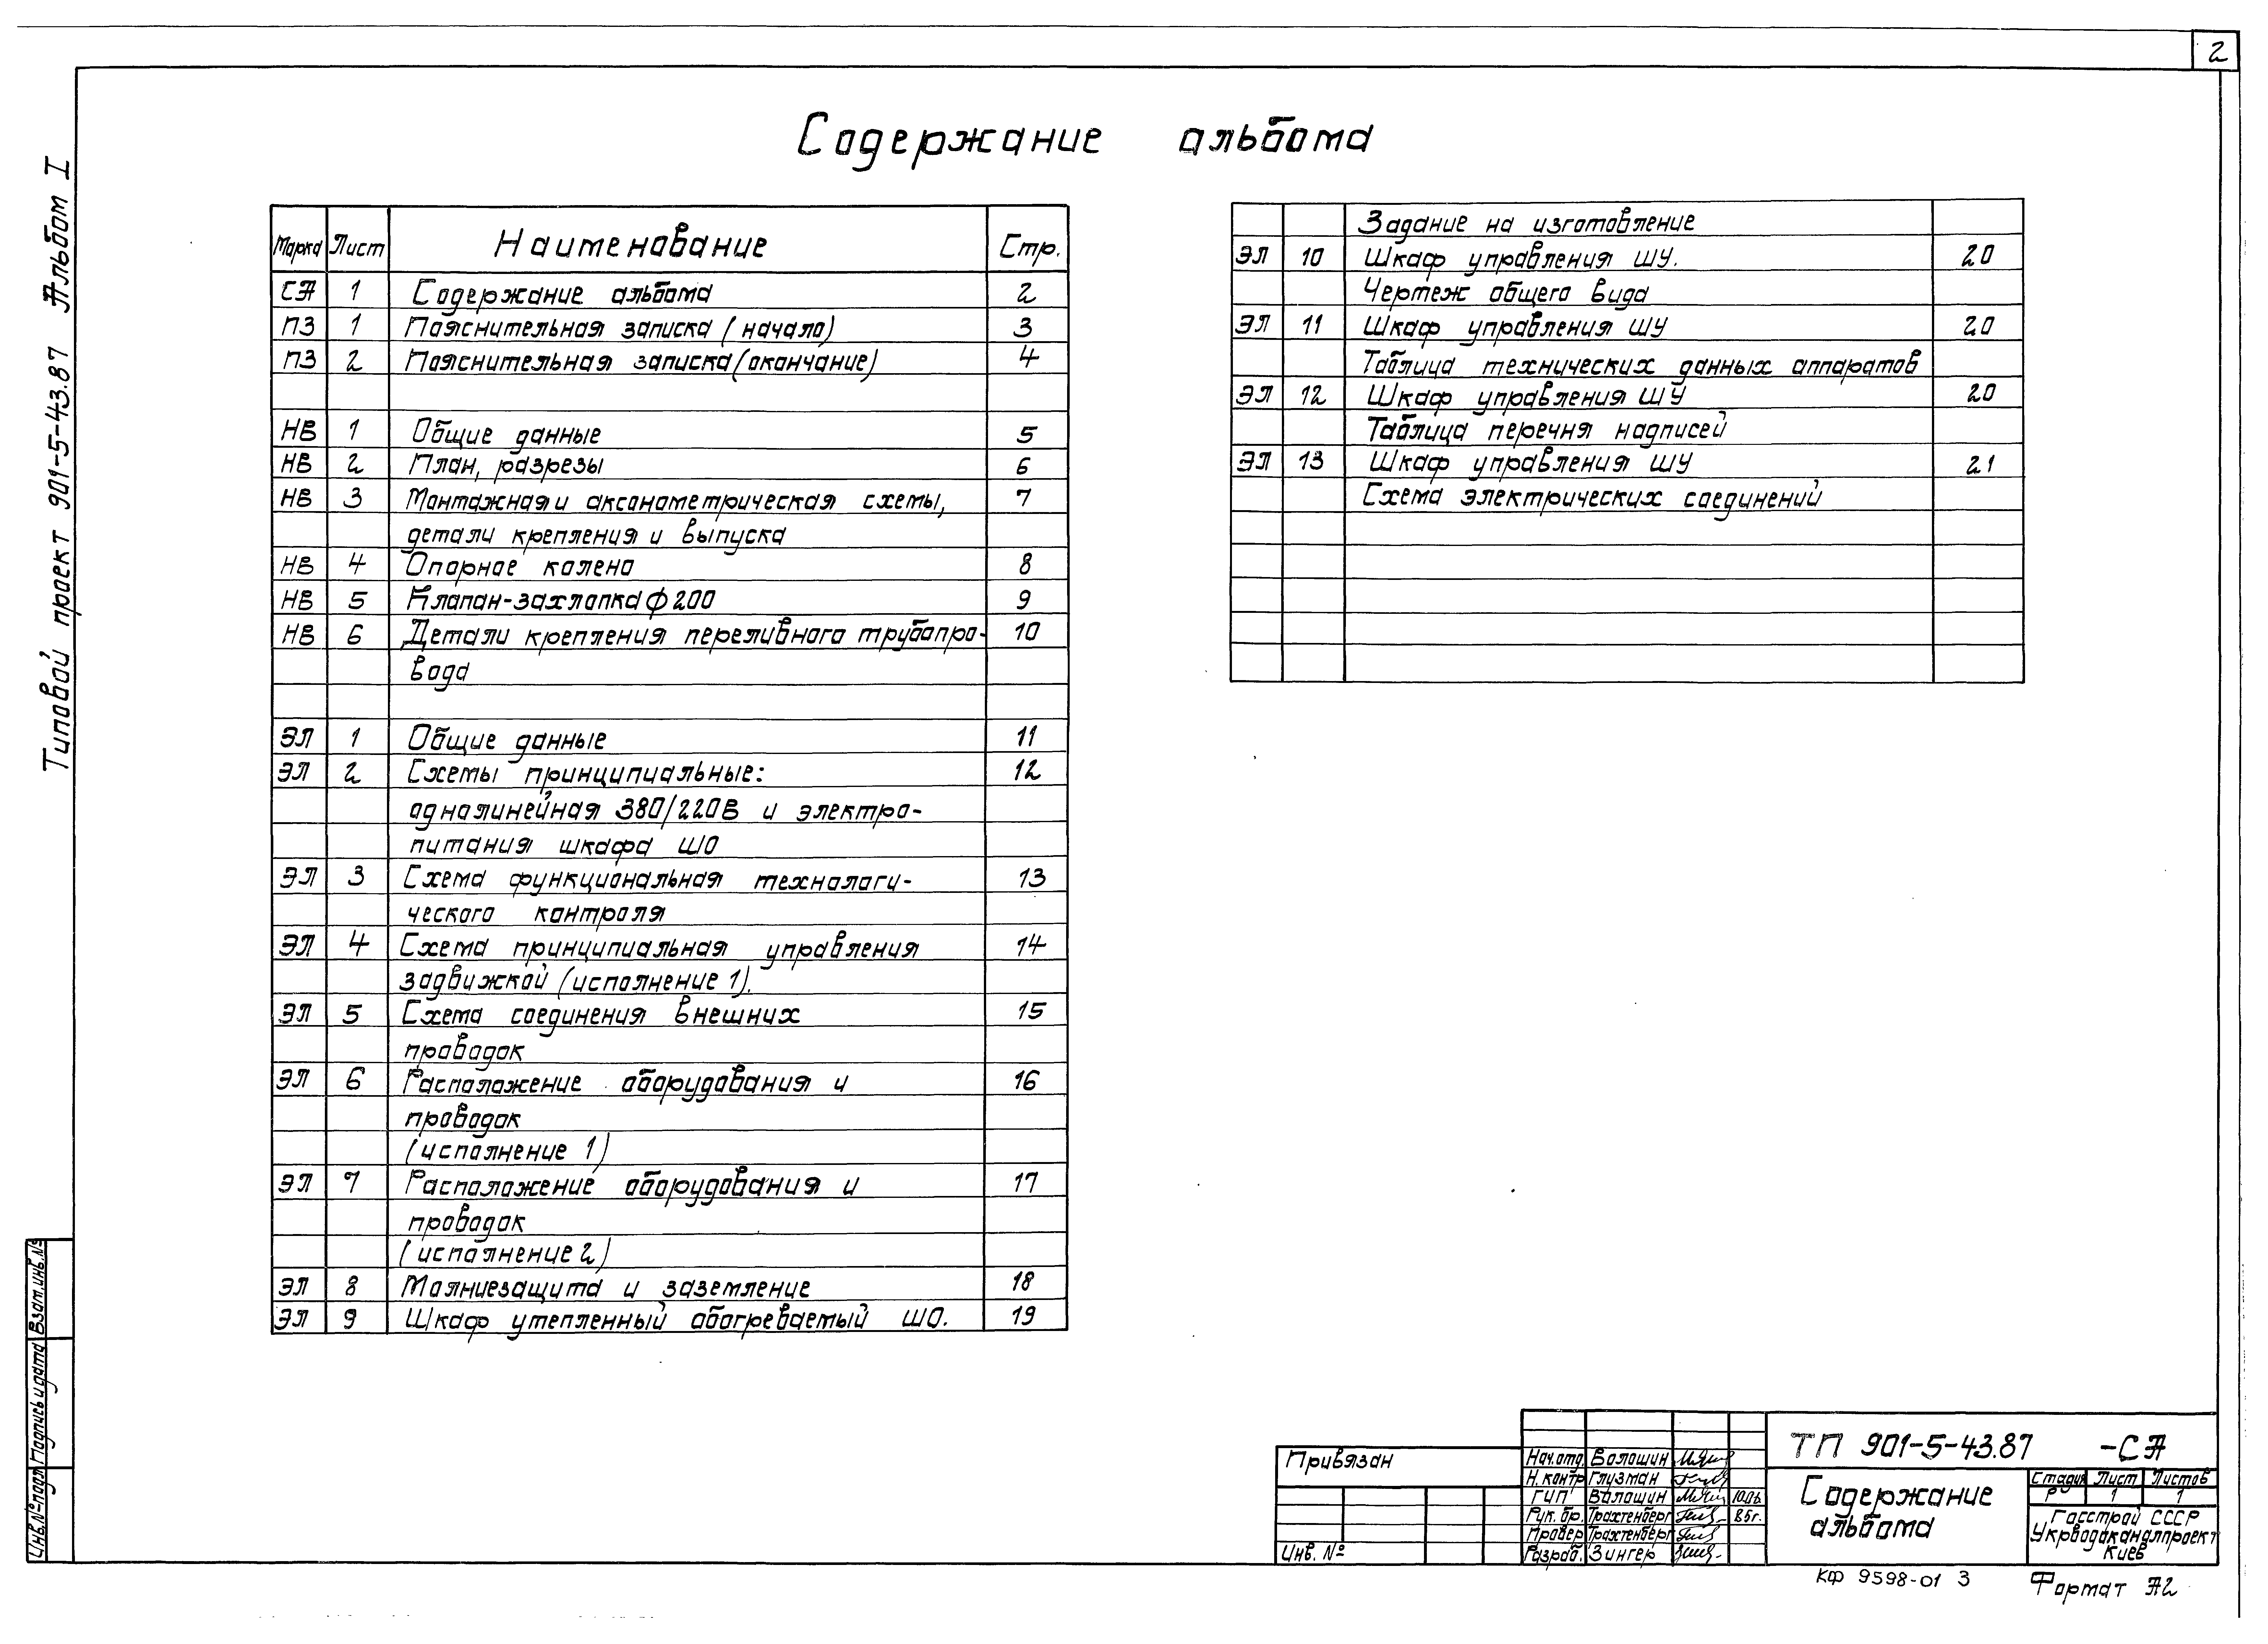 2
Содержание альбома
Типовой проект 901-5-43.87 Альбом I
Марка Лист Наименование Стр.
СА 1 Содержание альбома 2
ПЗ 1 Пояснительная записка (начало) 3
ПЗ 2 Пояснительная записка (окончание) 4
НВ 1 Общие данные 5
НВ 2 План, разрезы 6
НВ 3 Монтажная и аксонометрическая схемы, 7
детали крепления и выпуска
НВ 4 Опорное колено 8
НВ 5 Клапан-захлопка ф 200 9
НВ 6 Детали крепления переливного трубопро- 10
вода
ЭЛ 1 Общие данные 11
ЭЛ 2 Схемы принципиальные: 12
однолинейная 380/220В и электро-
питания шкафа ШО
ЭЛ 3 Схема функциональная технологи- 13
ческого контроля
ЭЛ 4 Схема принципиальная управления 14
задвижкой (исполнение 1).
ЭЛ 5 Схема соединения внешних 15
проводок
ЭЛ 6 Расположение оборудования и 16
проводок
(исполнение 1)
ЭЛ 7 Расположение оборудования и 17
проводок
(исполнение 2)
ЭЛ 8 Молниезащита и заземление 18
ЭЛ 9 Шкаф утепленный обогреваемый ШО. 19
Задание на изготовление
ЭЛ 10 Шкаф управления ШУ. 20
Чертеж общего вида
ЭЛ 11 Шкаф управления ШУ 20
Таблица технических данных аппаратов
ЭЛ 12 Шкаф управления ШУ 20
Таблица перечня надписей
ЭЛ 13 Шкаф управления ШУ 21
Схема электрических соединений
Инв.№подл Подпись и дата Взам.инв.№
Привязан
Инв. №
Нач.отд. Волошин
Н.контр Глузман
ГИП Волошин 10.06.
Рук. бр. Трахтенберг 85г.
Провер Трахтенберг
Разраб. Зингер
ТП 901-5-43.87 -СА
Содержание
альбома
Стадия Лист Листов
Р 1 1
Госстрой СССР
Укрводоканалпроект
Киев
КФ 9598-01 3
Формат А2